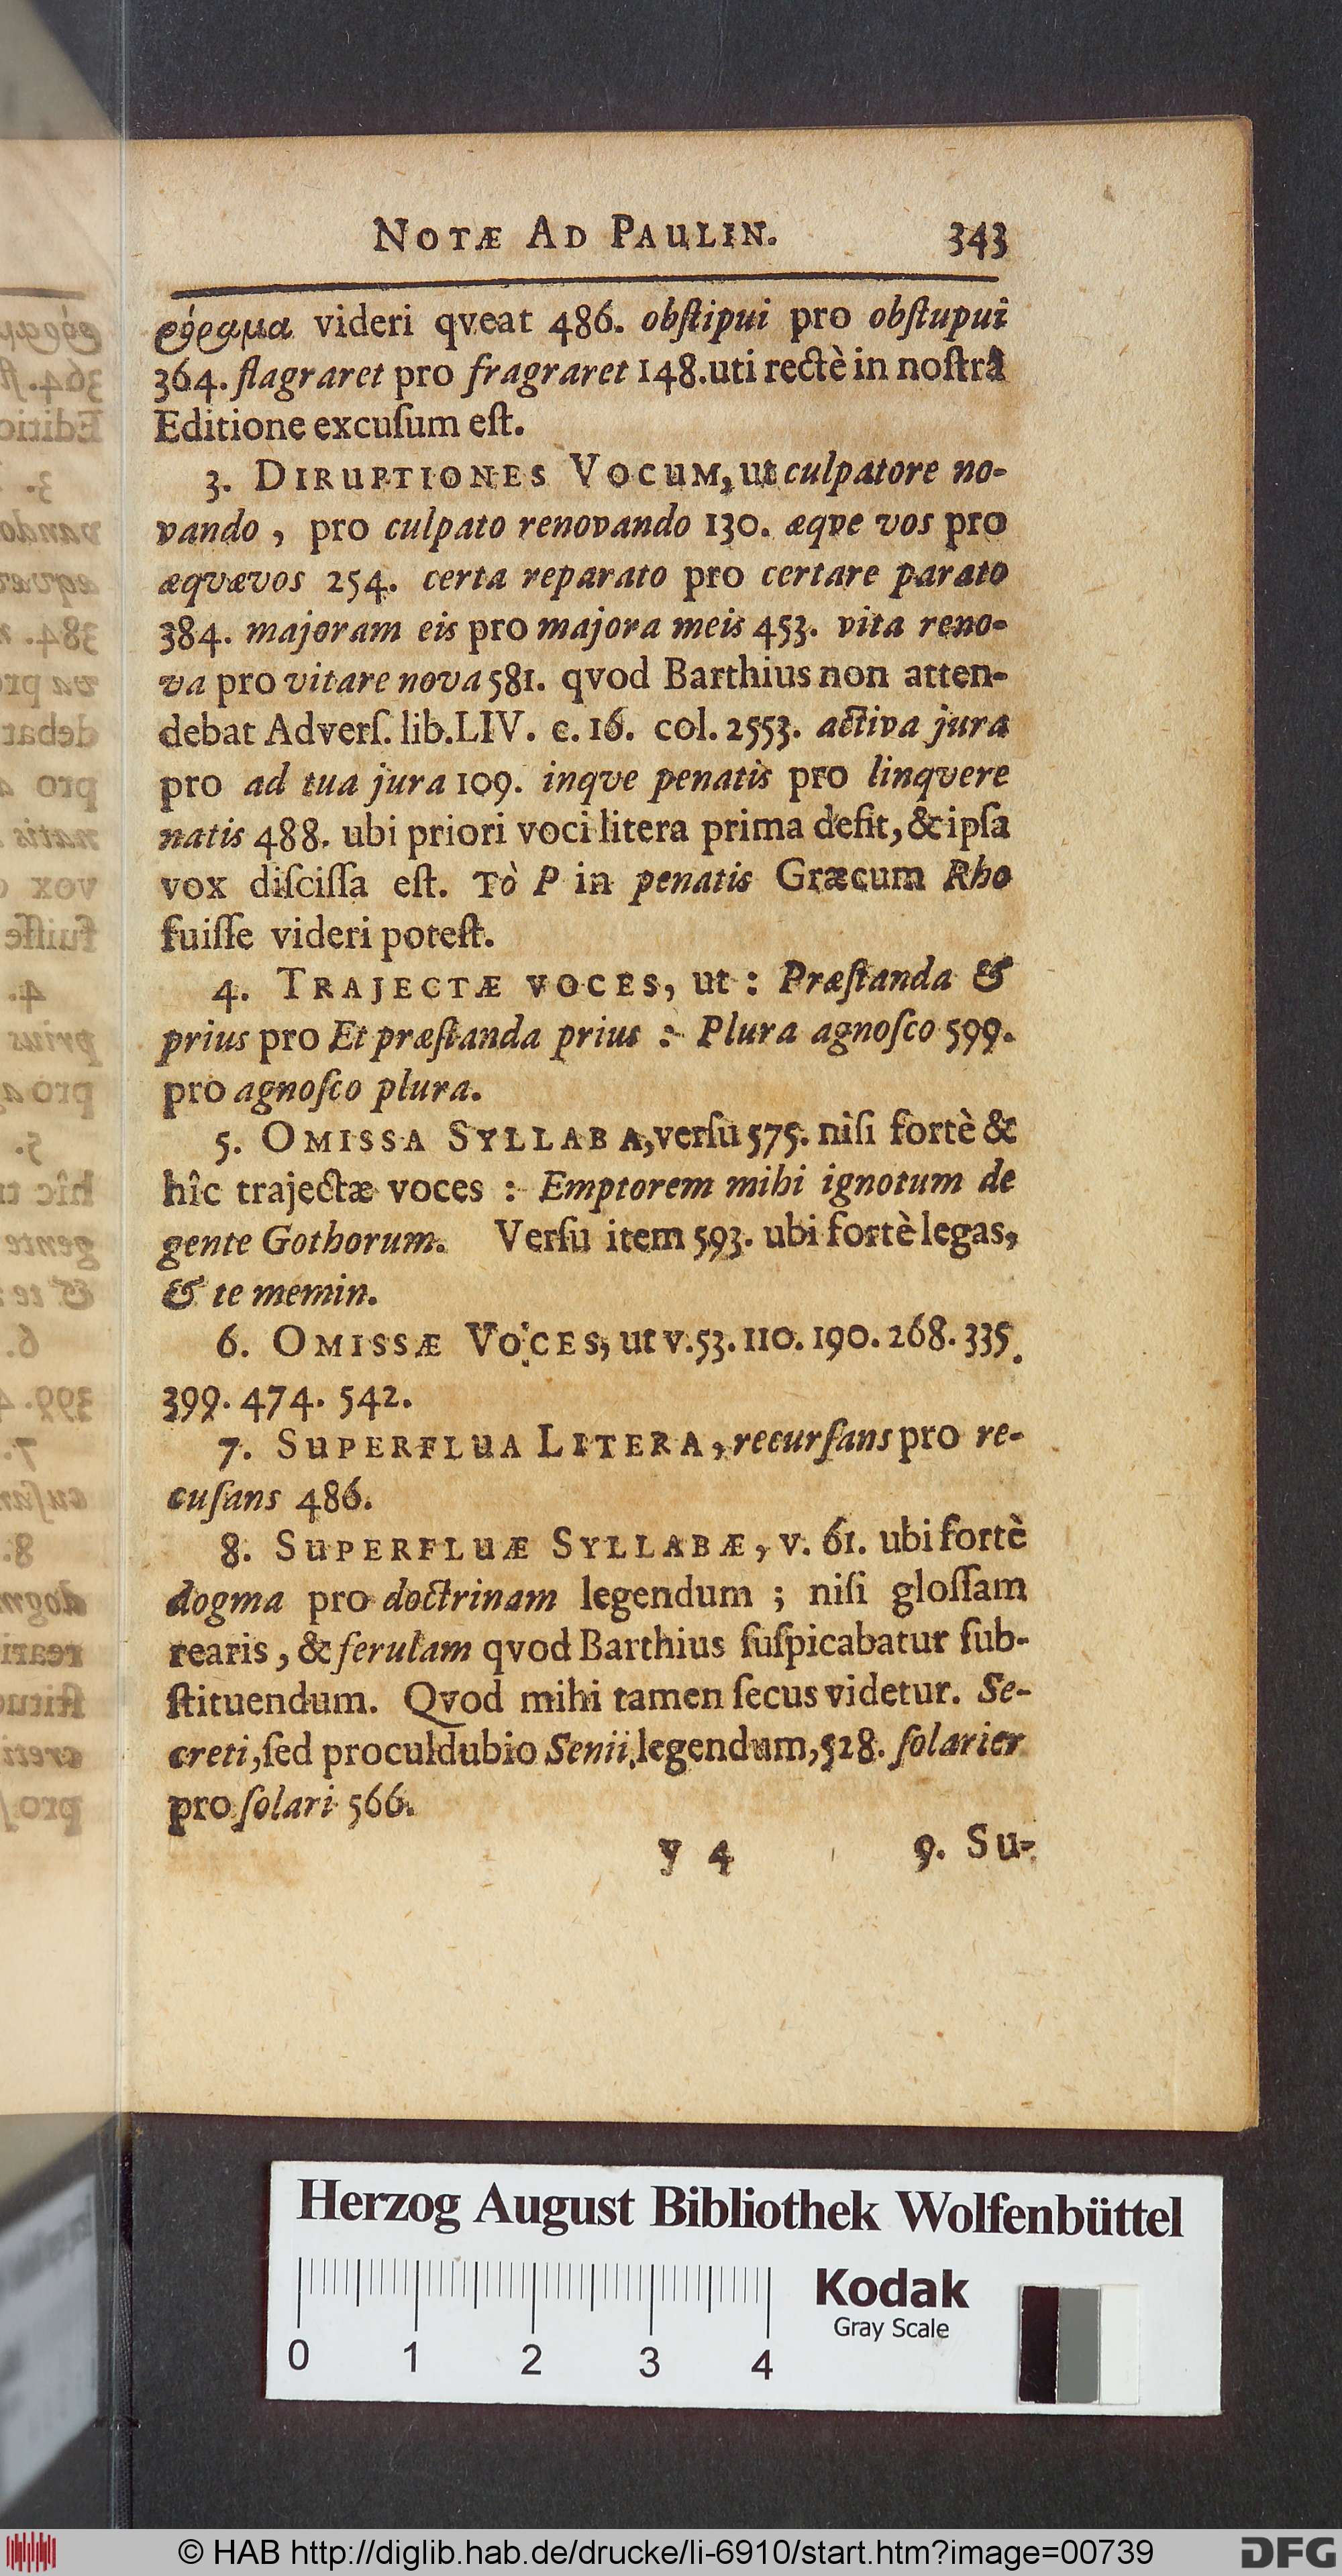 NOTÆ AD PAULIN. 343
videri qveat 486. obſtipui pro obſtupui
364. flagraret pro fragraret 148. uti rectè in noſtrâ
Editione excuſum eſt.
3. DIRUPTIONES VOCUM, ut culpatore no-
vando, pro culpato renovando 130. æqve vos pro
æqvævos 254. certa reparato pro certare parato
384. majoram eis pro majora meis 453. vita reno-
va pro vitare nova 581. qvod Barthius non atten-
debat Adverſ. lib. LIV. c. 16. col. 2553. activa jura
pro ad tua jura 109. inqve penatis pro linqvere
natis 488. ubi priori voci litera prima deſit, & ipſa
vox diſciſſa eſt. Tò P in penatis Græcum Rho
fuiſſe videri poteſt.
4. TRAJECTÆ VOCES, ut: Præſtanda &
prius pro Et præſtanda prius: Plura agnoſco 599.
pro agnoſco plura.
5. OMISSA SYLLABA, verſu 575. niſi fortè &
hîc trajectæ voces: Emptorem mihi ignotum de
gente Gothorum. Verſu item 593. ubi fortè legas,
& te memin.
6. OMISSÆ VOCES, ut v. 53. 110. 190. 268. 335.
399. 474. 542.
7. SUPERFLUA LITERA, recurſans pro re-
cuſans 486.
8. SUPERFLUÆ SYLLABÆ, v. 61. ubi fortè
dogma pro doctrinam legendum; niſi gloſſam
rearis, & ferulam qvod Barthius ſuſpicabatur ſub-
ſtituendum. Qvod mihi tamen ſecus videtur. Se-
creti, ſed proculdubio Senii legendum, 528. ſolarier
pro ſolari 566.
y 4 9. Su-
Herzog August Bibliothek Wolfenbüttel
Kodak
Gray Scale
0 1 2 3 4
© HAB http://diglib.hab.de/drucke/li-6910/start.htm?image=00739 DFG